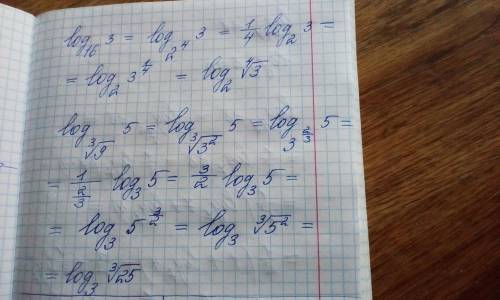 log₁₆ 3 = log_{2⁴} 3 = 1/4 log₂ 3 =
= log₂ 3^{1/4} = log₂ ∜3
log_{∛9} 5 = log_{∛3²} 5 = log_{3^{2/3}} 5 =
= 1/(2/3) log₃ 5 = 3/2 log₃ 5 =
= log₃ 5^{3/2} = log₃ ∛5² =
= log₃ ∛25